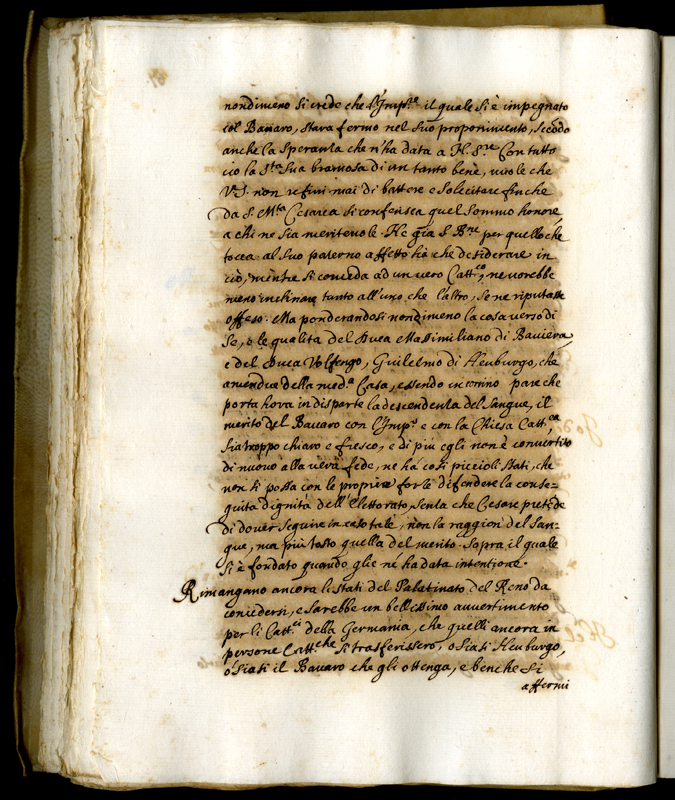 nondimeno si crede che l'Imp.re il quale si è impegnato
col Bavaro, stara fermo nel suo proponimento, secōdo
anche la speranza che n'ha data a N. S.re Con tutto
cio la S.ta Sua bramosa di un tanto bene, vuole che
V.S. non resti mai di battere e solecitare finche
da S. M.ta Cesarea si conferisca quel sommo honore,
a chi ne sia meritevole. Ne gia S. B.ne per quello che
tocca al suo paterno affetto ha che desiderare in
ciò, mentre si conceda ad un vero Catt.co, ne vorebbe
meno inclinare tanto all'uno che l'altro, se ne riputasse
offeso. Ma ponderandosi nondimeno la cosa verso di
se, e le qualita del Duca Massimiliano di Baviera,
e del Duca Volfango, Guilelmo di Neuburgo, che
amendue della med.a Casa, essendo in comino pare che
porta hora in disparte la descendenza del sangue, il
merito del Bavaro con l'Imp.e e con la Chiesa Catt.ca
sia troppo chiaro e fresco, e di piu egli non è convertito
di nuovo alla vera fede, ne ha cosi piccioli stati, che
non si possa con le proprire forze difendere la conse=
guita dignità dell'Elettorato, senza che Cesare pretēde
di dover seguire in caso tale, non la raggion del san=
gue, ma più tosto quella del merito. Sopra il quale
si è fondato quando glie nè ha data intentione.
Rimangano ancora li stati del Palatinato del Reno da
concedersi, e sarebbe un bellissimo auvertimento
per li Catt.ci della Germania, che quelli ancora in
persone Catt.che si trasferissero, o siasi Neuburgo,
o siasi il Bavaro che gli ottenga, e benche si
affermi